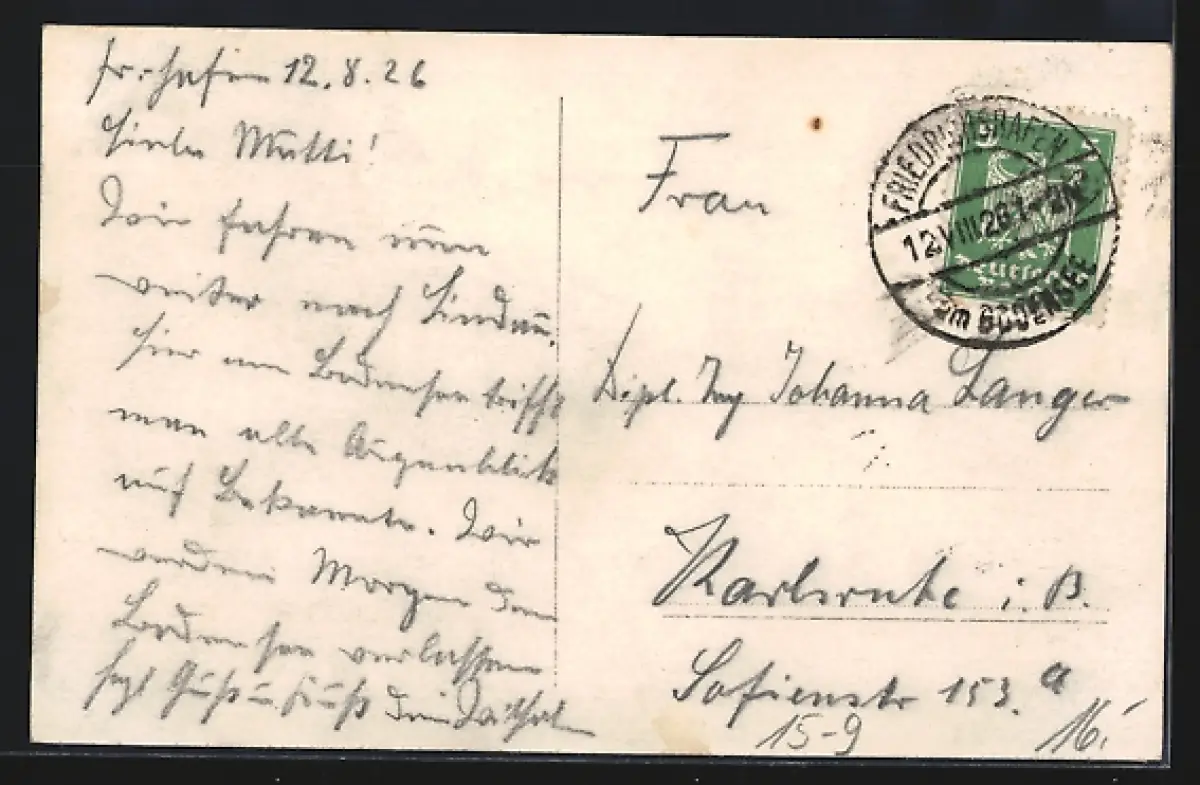 Fr.-hafen 12.8.26
Liebe Mutti!
Wir fahren nun
weiter nach Lindau.
Hier am Bodensee trifft
man alle Augenblick
auf Bekannte. Wir
werden Morgen den
Bodensee verlassen
Gruß u. Kuß dein
Frau
Dipl. Ing Johanna Langer
Karlsruhe i. B.
Sofienstr 153.a
15-9
16.
FRIEDRICHSHAFEN
12 VIII 26 1-2N
am BODENSEE
5
Deutsches